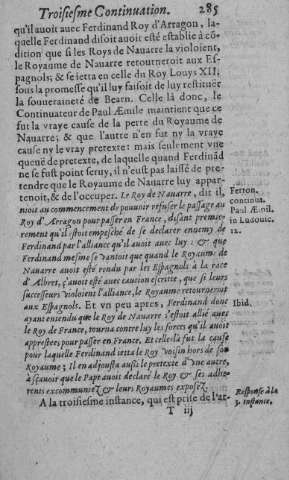 Troisiesme Continuation. 285
qu'il auoit auec Ferdinand Roy d'Arragon, la-
quelle Ferdinand disoit auoir esté establie à cō-
dition que si les Roys de Nauarre la violoient,
le Royaume de Nauarre retourneroit aux Es-
pagnols; & se ietta en celle du Roy Louys XII.
sous la promesse qu'il luy faisoit de luy restituer
la souueraineté de Bearn. Celle là donc, le
Continuateur de Paul Æmile maintient que ce
fut la vraye cause de la perte du Royaume de
Nauarre; & que l'autre n'en fut ny la vraye
cause ny le vray pretexte: mais seulement vne
queuë de pretexte, de laquelle quand Ferdinād
ne se fust point seruy, il n'eust pas laissé de pre-
tendre que le Royaume de Nauarre luy appar-
tenoit, & de l'occuper. Le Roy de Nauarre, dit il,
nioit au commencement de pouuoir refuser le passage au
Roy d'Arragon pour passer en France, disant premie-
rement qu'il estoit empesché de se declarer ennemy de
Ferdinand par l'alliance qu'il auoit auec luy: & que
Ferdinand mesme se vantoit que quand le Royaume de
Nauarre auoit esté rendu par les Espagnols à la race
d'Albret, ç'auoit esté auec caution escritte, que si leurs
successeurs violoient l'alliance, le Royaume retourneroit
aux Espagnols. Et vn peu apres, Ferdinand donc
ayant entendu que le Roy de Nauarre s'estoit allié auec
le Roy de France, tourna contre luy les forces qu'il auoit
apprestées pour passer en France. Et celle là fut la cause
pour laquelle Ferdinand ietta le Roy voisin hors de son
Royaume; Il en adjousta aussi le pretexte d'vne autre,
à sçauoir que le Pape auoit declaré le Roy & ses adhe-
rents excommuniez & leurs Royaumes exposez.
A la troisiesme instance, qui est prise de l'ar-
T iij
Ferron.
continua.
Paul Æmil.
in Ludouic.
12.
Ibid.
Response à la
3. instance.